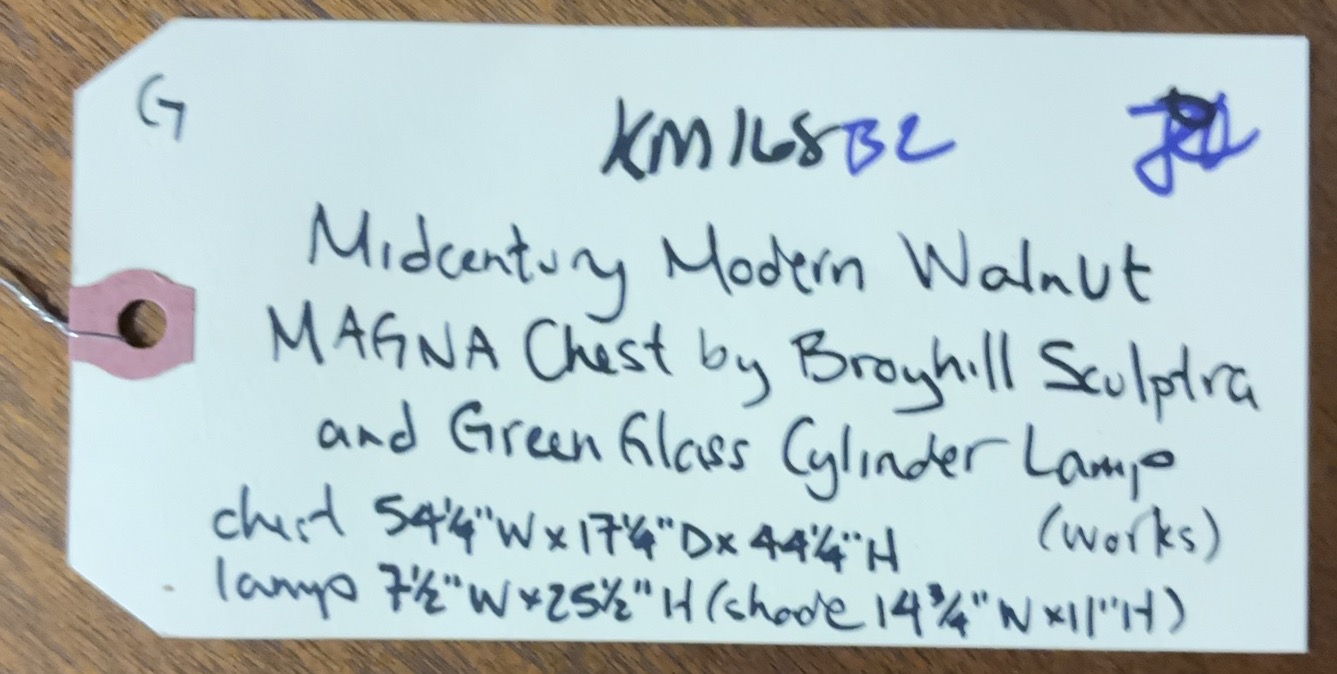 G
KM168 B2
Midcentury Modern Walnut
MAGNA Chest by Broyhill Sculptra
and Green Glass Cylinder Lamp
chest 54¼"W x 17¼"D x 44¼"H (works)
lamp 7½"W x 25½"H (shade 14¾"W x 11"H)